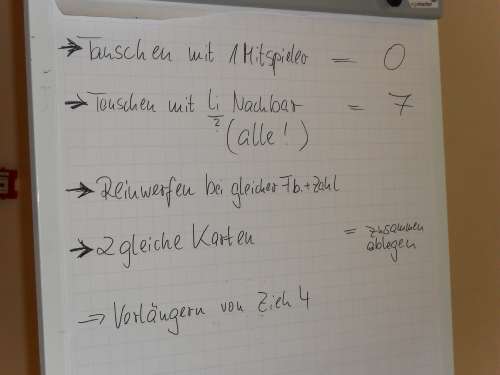 → Tauschen mit 1 Mitspieler = 0
→ Tauschen mit Li Nachbar = 7
(alle!)
→ Reinwerfen bei gleicher Fb. + Zahl
→ 2 gleiche Karten = zusammen
ablegen
⇒ Vorlängern von Zieh 4